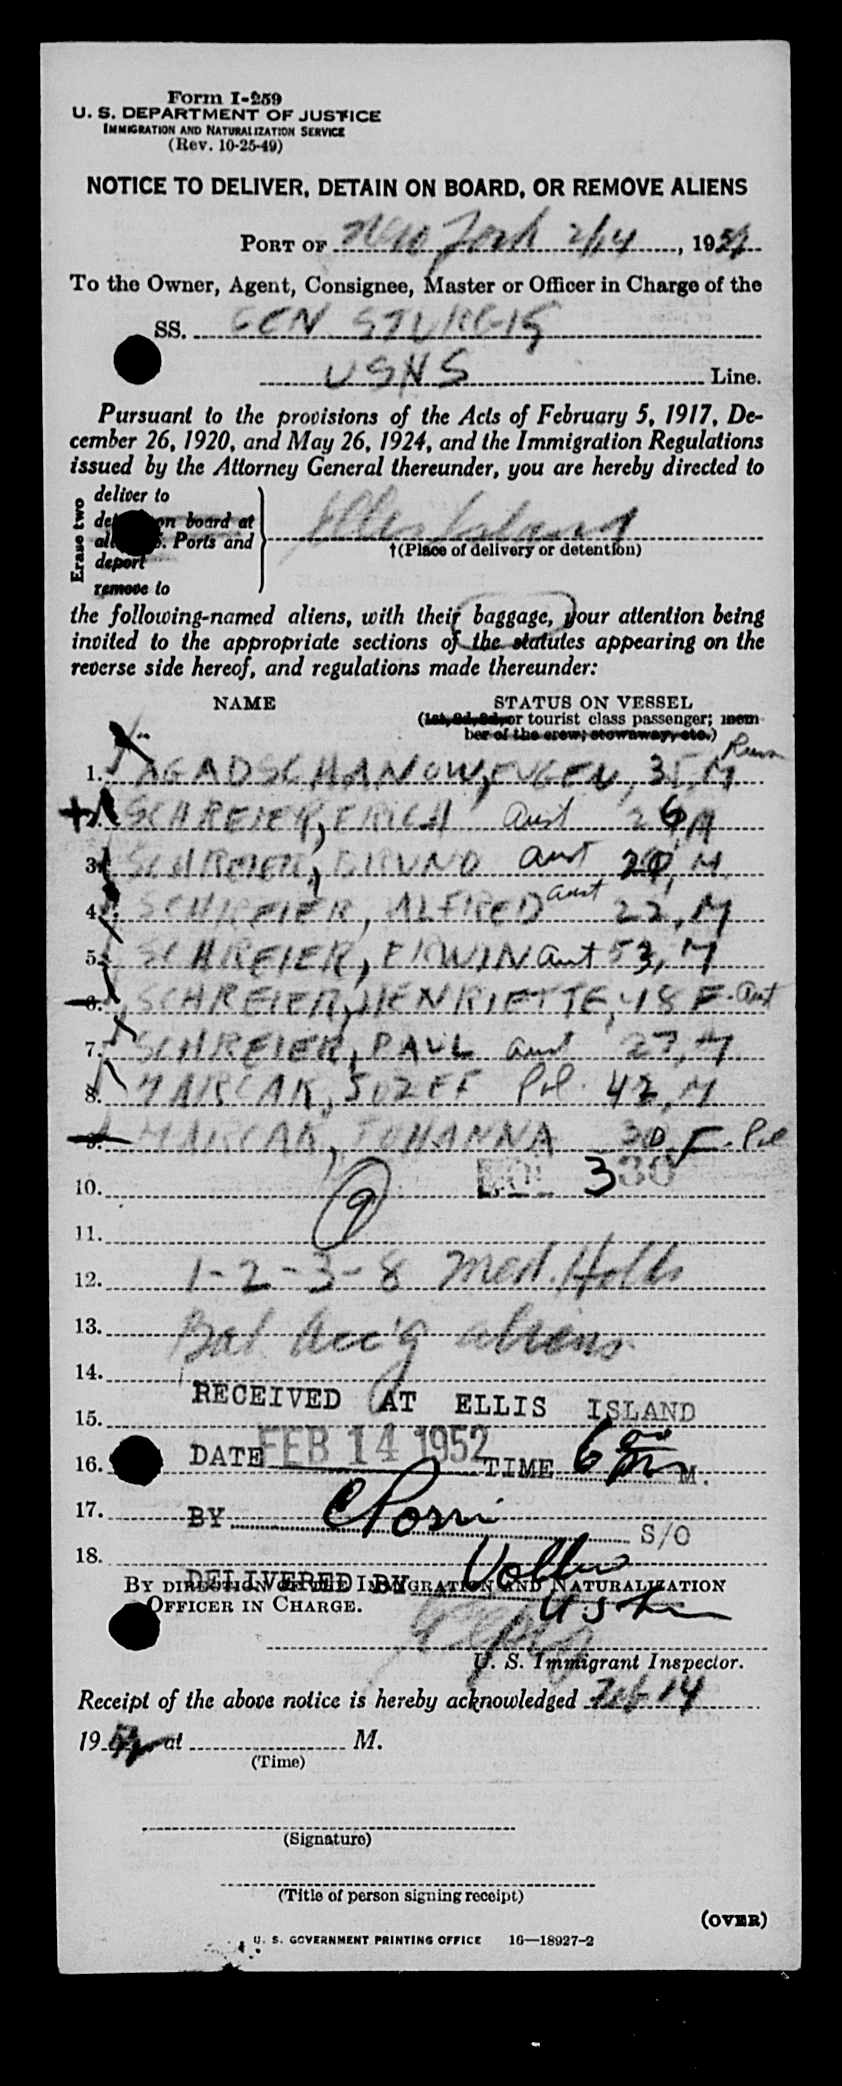 Form I-259
U. S. DEPARTMENT OF JUSTICE
IMMIGRATION AND NATURALIZATION SERVICE
(Rev. 10-25-49)
NOTICE TO DELIVER, DETAIN ON BOARD, OR REMOVE ALIENS
PORT OF New York 2/14, 1952
To the Owner, Agent, Consignee, Master or Officer in Charge of the
SS. GEN STURGIS
USNS Line.
Pursuant to the provisions of the Acts of February 5, 1917, De-
cember 26, 1920, and May 26, 1924, and the Immigration Regulations
issued by the Attorney General thereunder, you are hereby directed to
Erase two
deliver to
on board at
Ports and
deport
remove to
Ellis Island
†(Place of delivery or detention)
the following-named aliens, with their baggage, your attention being
invited to the appropriate sections of the statutes appearing on the
reverse side hereof, and regulations made thereunder:
NAME STATUS ON VESSEL
(1st, 2d, 3d, or tourist class passenger; mem-
ber of the crew; stowaway, etc.)
1. AGADSCHANOW, EUGEN, 35, M Russ
2. SCHREIER, ERICH aust 26, M
3. SCHREIER, BRUNO aust 20, M.
4. SCHREIER, ALFRED aust 22, M
5. SCHREIER, ERWIN aust 53, M
6. SCHREIER, HENRIETTE, 48 F. aust
7. SCHREIER, PAUL aust 27, M
8. MARCAK, JOZEF Pol. 42, M
9. MARCAK, JOHANNA 30, F. Pol
10. 330
11. 9
12. 1-2-3-8 Med. Holds
13. Bal Acc'g aliens
14.
15. RECEIVED AT ELLIS ISLAND
16. DATE FEB 14 1952 TIME 6 M.
17. BY S/O
18.
DELIVERED BY
BY DIRECTION OF THE IMMIGRATION AND NATURALIZATION
OFFICER IN CHARGE.
U. S. Immigrant Inspector.
Receipt of the above notice is hereby acknowledged Feb 14
1952 at M.
(Time)
(Signature)
(Title of person signing receipt)
(OVER)
U. S. GOVERNMENT PRINTING OFFICE 16—18927-2